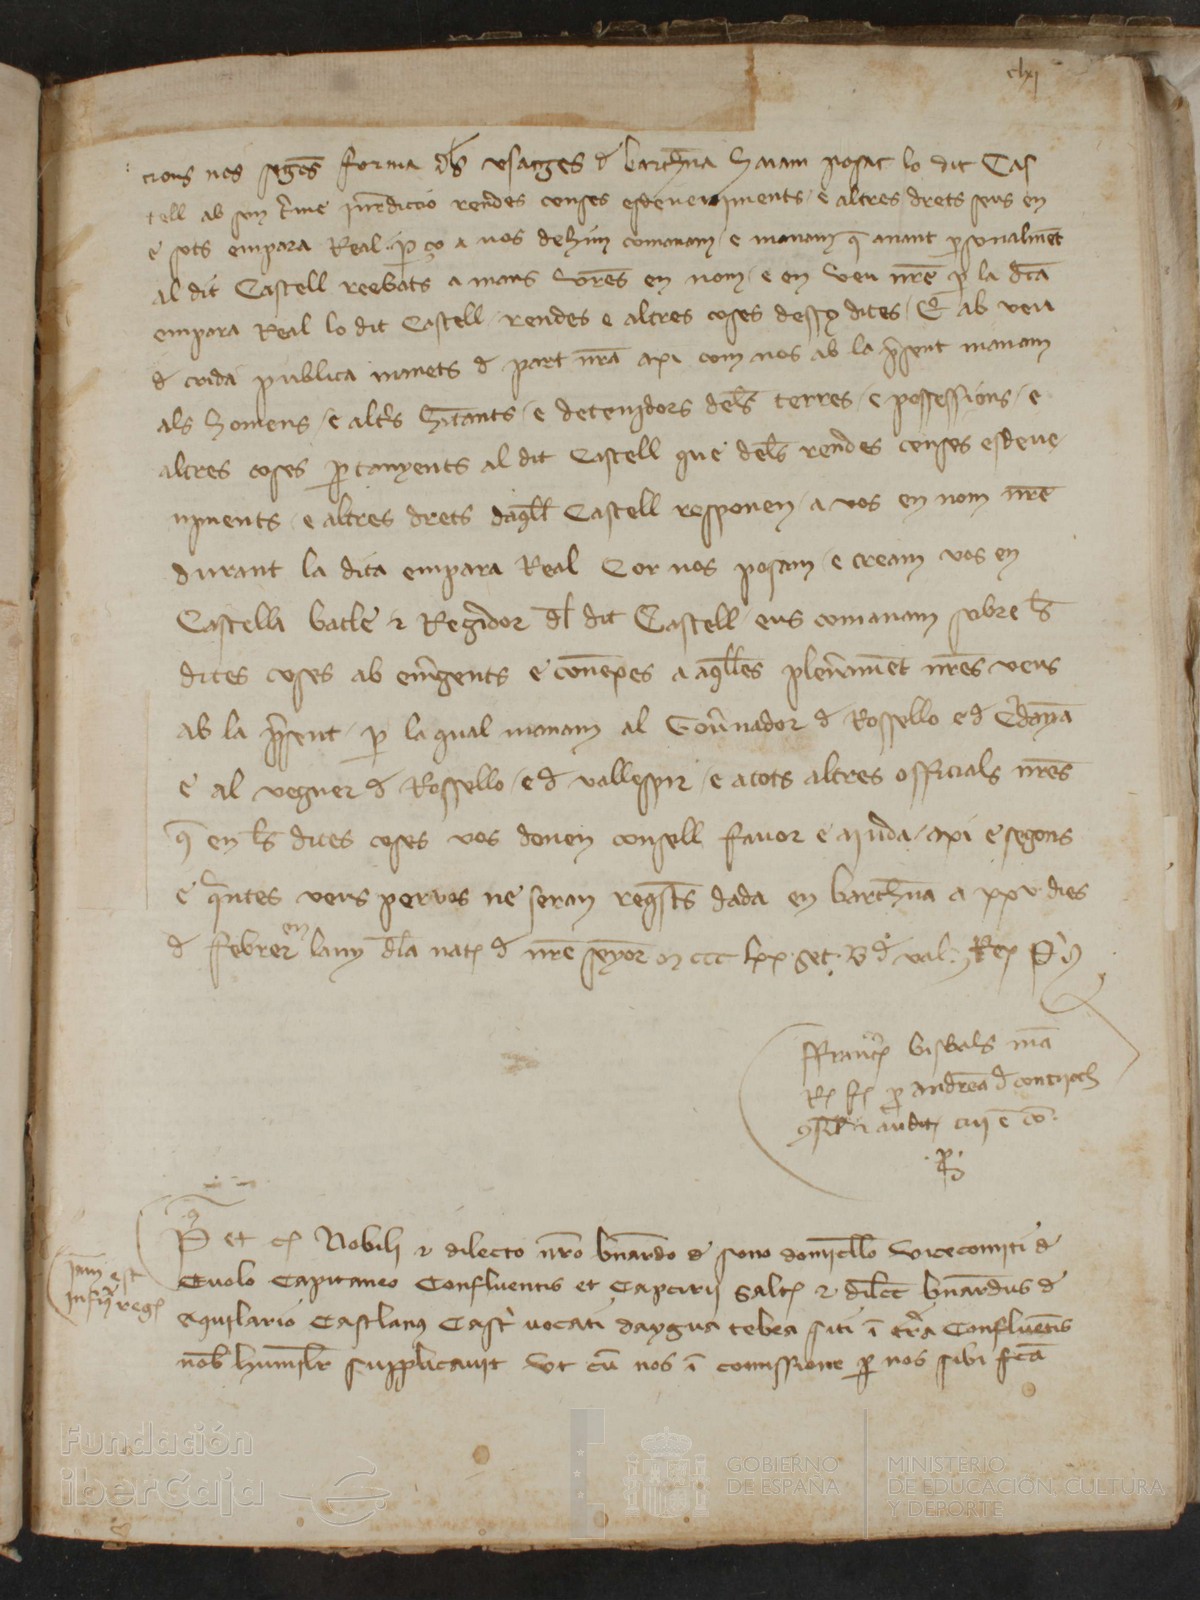 clxj
cions nos segons forma dls vsatges d barchna haiam posat lo dit Cas
tell ab son tme jurediccio rendes censes esdeveniments e altres drets seus en
e sots empara Real per ço a vos dehim comanam e manam q anant psonalment
al dit Castell reebats a mans vres en nom e en veu nre p la dca
empara Real lo dit Castell rendes e altres coses dessus dites E ab veu
d crida publica manets d part nra axi com nos ab la psent manam
als homens e altrs hitants e detenidors dels terres e possessions e
altres coses ptanyents al dit Castell que dels rendes censes esdeue
niments e altres drets daqll Castell responen a vos en nom nre
durant la dita empara Real Cor nos posam e cream vos en
Castella batle z Regidor dl dit Castell eus comanam sobre ls
dites coses ab emgents e conexes a aqlles plenament nres veus
ab la psent p la qual manam al Gouernador d Rossello e d Cdanya
e al veguer d Rossello e d vallespir e a tots altres officials nres
q en ls dites coses vos donen consell fauor e aiuda axi e segons
e quntes veus per vos ne seran reqsts dada en barchna a xxv dies
d febrer en lany dla nat d nre senyor M ccc lxx set B d val Rex P
ffrancs bisbals ma
R f p andrea d contijoch
auditi cui e co
p
P et c Nobili z dilecto nro bnardo de sono domicello vicecomiti de
Euolo Capitaneo Confluentis et Capcirij Salt z dilcc bnardus de
aquilario Castlanus Castri vocati daygua tebea siti i tra Confluentis
nob humilr supplicauit vt cu nos i comissione p nos sibi fca
Jam est
infi reg
Fundación
iberCaja
GOBIERNO
DE ESPAÑA
MINISTERIO
DE EDUCACIÓN, CULTURA
Y DEPORTE